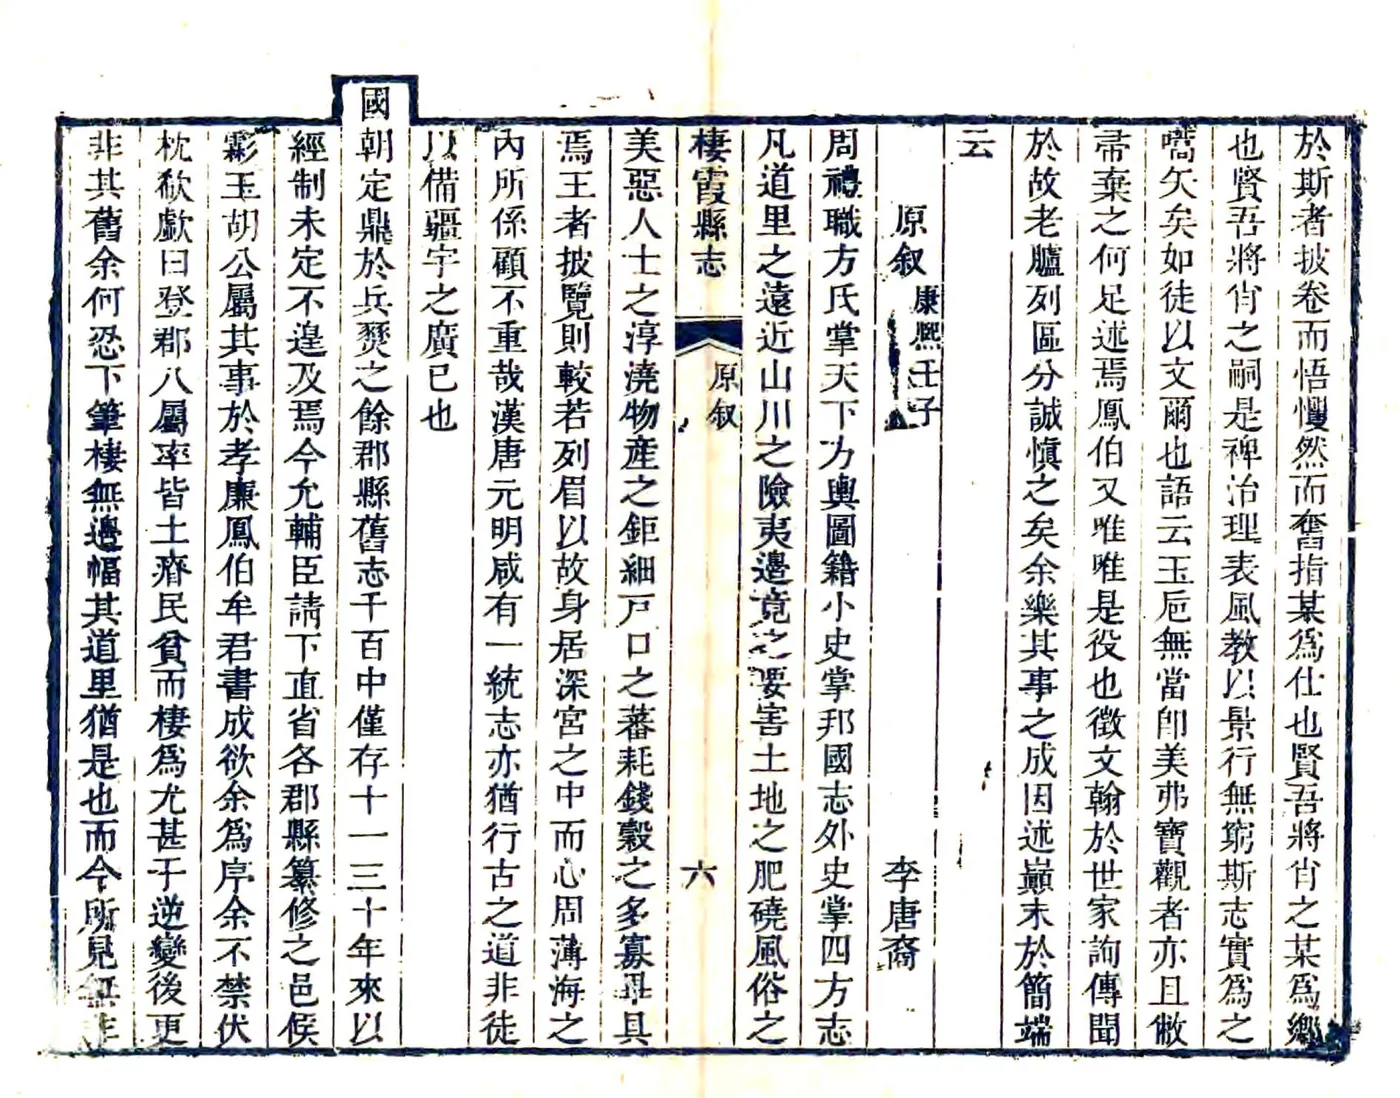 於斯者披卷而悟戄然而奮指某爲仕也賢吾將肖之某爲鄉
也賢吾將肖之嗣是裨治理表風教以景行無窮斯志實爲之
嚆矢矣如徒以文爾也語云玉巵無當卽美弗寶觀者亦且敝
帚棄之何足述焉鳳伯又唯唯是役也徵文翰於世家詢傳聞
於故老臚列區分誠愼之矣余樂其事之成因述巓末於簡端
云
原叙 康熙壬子 李唐裔
周禮職方氏掌天下方輿圖籍小史掌邦國志外史掌四方志
凡道里之遠近山川之險夷邊竟之要害土地之肥磽風俗之
棲霞縣志 原叙 六
美惡人士之淳澆物産之鉅細戸口之蕃耗錢穀之多寡畢具
焉王者披覽則較若列眉以故身居深宮之中而心周薄海之
內所係顧不重哉漢唐元明咸有一統志亦猶行古之道非徒
以備疆宇之廣已也
國朝定鼎於兵燹之餘郡縣舊志千百中僅存十一三十年來以
經制未定不遑及焉今允輔臣請下直省各郡縣纂修之邑侯
霦玉胡公屬其事於孝廉鳳伯牟君書成欲余爲序余不禁伏
枕欷歔曰登郡八屬率皆土瘠民貧而棲爲尤甚于逆變後更
非其舊余何忍下筆棲無邊幅其道里猶是也而今所見無非